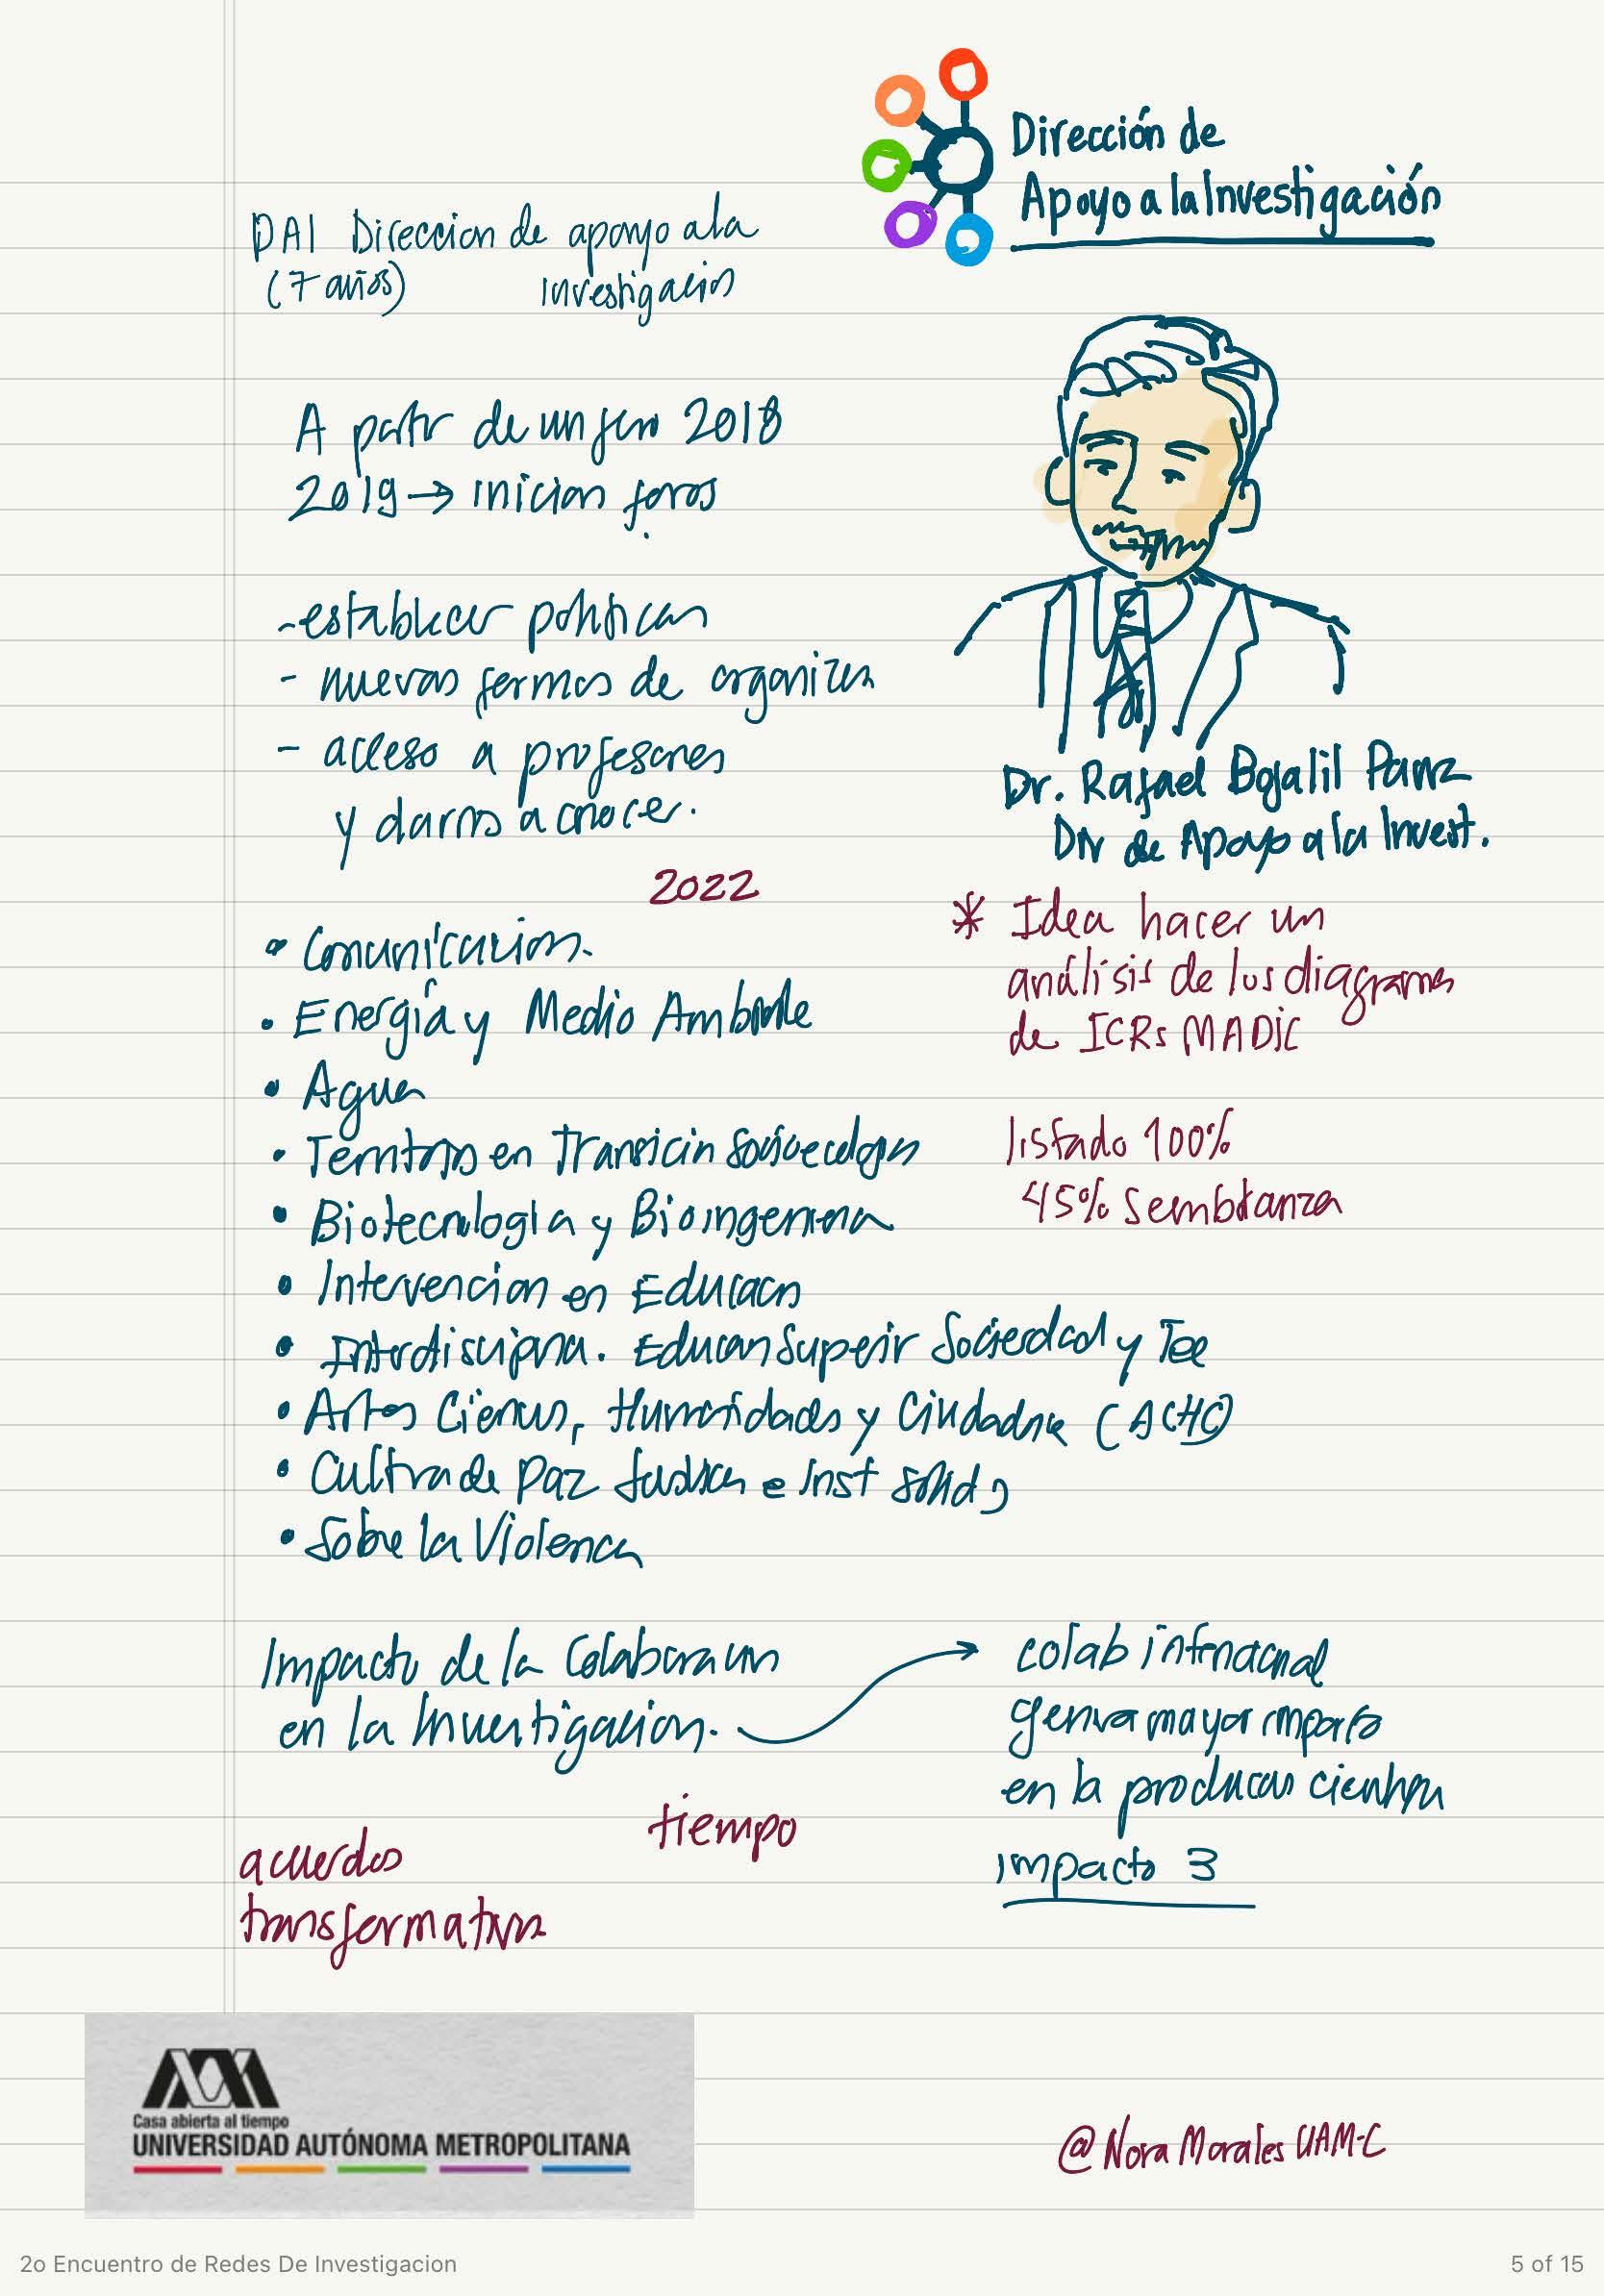 Dirección de
Apoyo a la Investigación
DAI Direccion de apoyo a la
(7 años) investigación
A partir de un foro 2018
2019 → inician foros
- establecer politicas
- nuevas formas de organizar
- acceso a profesores
y darnos a conocer.
Dr. Rafael Bojalil Parra
Div de Apoyo a la Invest.
2022
• Comunicacion.
• Energía y Medio Ambiente
• Agua
• Territorios en Transición Socioecolog
• Biotecnologia y Bioingenieria
• Intervencion en Educacn
• Interdisciplina. Educan Superir Sociedad y Tec
• Artes Ciencias, Humanidades y Ciudadnia (ACHC)
• Cultura de Paz Justicia e Inst Solid
• Sobre la Violencia
* Idea hacer un
análisis de los diagramas
de ICRs MADIC
listado 100%
45% semblanza
Impacto de la Colaboracion
en la Investigacion.
colab internacional
genera mayor impacto
en la produccion cientifica
impacto 3
tiempo
acuerdos
transformativos
Casa abierta al tiempo
UNIVERSIDAD AUTÓNOMA METROPOLITANA
@Nora Morales UAM-C
2o Encuentro de Redes De Investigacion
5 of 15